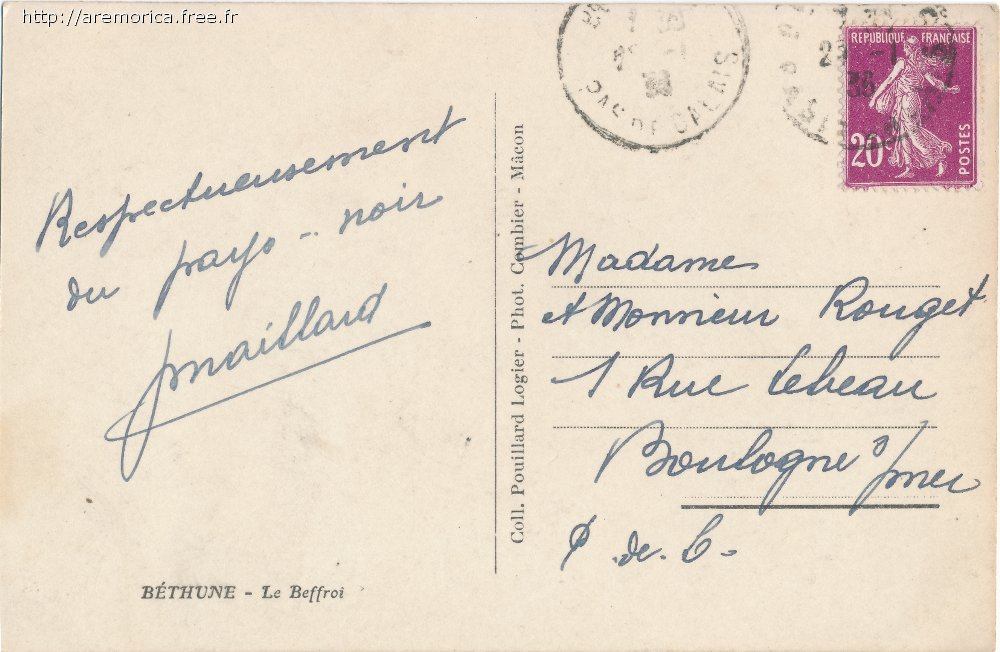 http://aremorica.free.fr
Respectueusement
du pays-noir
Jmaillard
BÉTHUNE - Le Beffroi
Coll. Pouillard Logier - Phot. Combier - Mâcon
PAS DE CALAIS
38
RÉPUBLIQUE FRANÇAISE
20c
POSTES
Madame
et Monsieur Rouget
1 Rue Lebeau
Boulogne s/mer
P.de.C-